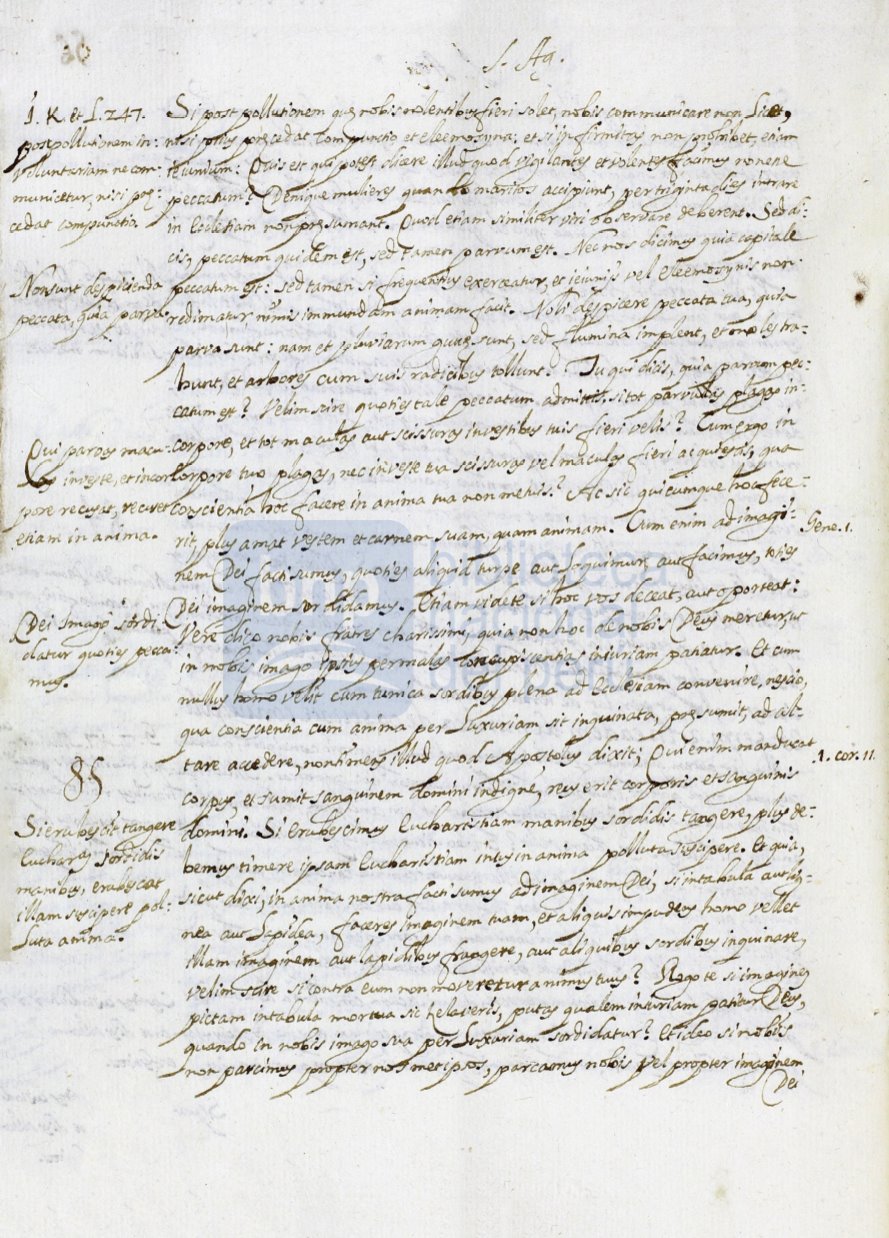 S. Ag.
I. K. et L. 247.
post pollutionem in-
voluntariam ne com-
municetur, nisi prę-
cedat compunctio.
Si post pollutionem quę nobis nolentibus fieri solet, nobis communicare non Licet,
nisi prius pręcedat compunctio et eleemosyna: et si infirmitas non prohibet, etiam
ieiunium: Quis est qui potest dicere illud quod vigilantes et volentes facimus non ene
peccatum? Denique mulieres quando maritos accipiunt, per triginta dies intrare
in Ecclesiam non pręsumant. Quod etiam similiter viri observare deberent. Sed di-
cis, peccatum quidem est, sed tamen parvum est. Nec nos dicimus quia capitale
Non sunt despicienda
peccata, quia parva
peccatum est: sed tamen si frequentius exerceatur, et ieiunijs vel eleemosynis non
redimatur nimis immundam animam facit. Noli despicere peccata tua, quia
parva sunt: nam et pluviarum guttę sunt, sed flumina implent, et moles tra-
hunt, et arbores cum suis radicibus tollunt. Tu qui dicis, quia parvum pec-
catum est? Velim scire quoties tale peccatum admittis, si tot parvulas plagas in
Qui parvas macu-
las in veste, et in cor-
pore recusat, recuset
etiam in anima.
corpore, et tot maculas aut scissuras in vestibus tuis fieri velis? Cum ergo in
corpore tuo plagas, nec in veste tua scissuras vel maculas fieri acquiescis, qua
conscientia hoc facere in anima tua non metuis? Ac sic quicunque hoc fece-
rit, plus amat vestem et carnem suam, quam animam. Cum enim ad imagi-
Gene. 1.
nem Dei facti sumus, quoties aliquid turpe aut loquimur, aut facimus, toties
Dei imaginem sordidamus. Etiam videte si hoc vos deceat, aut oporteat:
Dei Imago sordi-
datur quoties pecca-
mus.
Vere dico nobis fratres charissimi, quia non hoc de nobis Deus meretur, ut
in nobis imago ipsius per malas concupiscentias iniuriam patiatur. Et cum
nullus homo velit cum tunica sordibus plena ad Ecclesiam convenire, nescio,
qua conscientia cum anima per Luxuriam sit inquinata, pręsumit, ad al-
tare accedere, non timens illud quod Apostolus dixit; Qui enim manducat
1. cor. 11.
corpus, et sumit sanguinem domini indigne, reus erit corporis et sanguinis
§§
Si erubescit tangere
Eucharas sordidis
manibus, erubescat
illam suscipere pol-
Luta anima.
domini. Si erubescimus Eucharistiam manibus sordidis tangere, plus de-
bemus timere ipsam Eucharistiam intus in anima polluta suscipere. Et quia,
sicut dixi, in anima nostra facti sumus ad imaginem Dei, si in tabula aut lig-
nea aut Lapidea, faceres imaginem tuam, et aliquis impudens homo vellet
illam imaginem aut lapidibus frangere, aut aliquibus sordibus inquinare,
velim scire si contra eum non moveretur animus tuus? Rogo te si imaginem
pictam in tabula mortua sic zelaveris, putas qualem iniuriam patitur Deus,
quando in nobis imago sua per Luxuriam sordidatur? Et ideo si nobis
non parcimus propter nosmetipsos, parcamus nobis vel propter imaginem
Dei
biblioteca
nacional
del perú